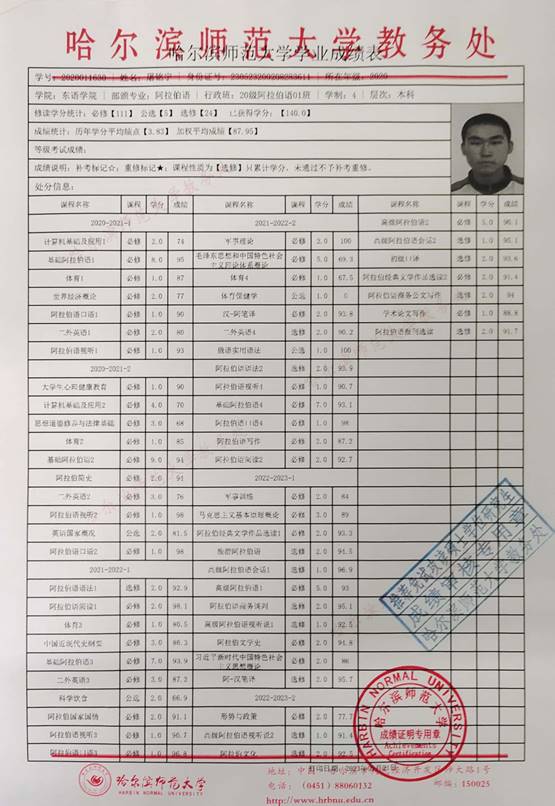 哈尔滨师范大学教务处
哈尔滨师范大学学业成绩表
学院：东语学院 | 部颁专业：阿拉伯语 | 行政班：20级阿拉伯语01班 | 学制：4 | 层次：本科
修读学分统计：必修【111】 公选【5】 选修【24】 已获得学分：【140.0】
成绩统计：历年学分平均绩点【3.83】 加权平均成绩【87.95】
等级考试成绩：
成绩说明：补考标记☆；重修标记★；课程性质为【选修】只累计学分，未通过不予补考重修。
处分信息：
课程名称 课程 学分 成绩 课程名称 课程 学分 成绩 课程名称 课程 学分 成绩
2020-2021-1 2021-2022-2 高级阿拉伯语2 必修 5.0 96.1
计算机基础及应用1 必修 2.0 74 军事理论 必修 2.0 100 高级阿拉伯语会话2 选修 1.0 95.1
基础阿拉伯语1 必修 8.0 95 毛泽东思想和中国特色社会主义理论体系概论 必修 5.0 69.3 初级口译 必修 2.0 93.6
体育1 必修 1.0 87 体育4 必修 1.0 67.5 阿拉伯经典文学作品选读2 必修 2.0 91.4
世界经济概论 必修 2.0 77 体育保健学 公选 1.0 0 阿拉伯语商务公文写作 选修 2.0 94
阿拉伯语口语1 必修 1.0 90 汉-阿笔译 必修 2.0 93.8 学术论文写作 必修 1.0 88.8
二外英语1 必修 2.0 80 二外英语4 选修 2.0 90.2 阿拉伯语报刊选读 选修 2.0 91.7
阿拉伯语视听1 必修 1.0 93 俄语实用语法 公选 1.0 100
2020-2021-2 阿拉伯语语法2 选修 2.0 93.9
大学生心理健康教育 必修 1.0 90 阿拉伯语视听4 必修 1.0 90.7
计算机基础及应用2 必修 4.0 70 基础阿拉伯语4 必修 7.0 93.1
思想道德修养与法律基础 必修 3.0 68 阿拉伯语口语4 必修 1.0 98
体育2 必修 1.0 85 阿拉伯语写作 必修 2.0 87.2
基础阿拉伯语2 必修 9.0 94 阿拉伯语阅读2 必修 2.0 92.7
阿拉伯简史 必修 2.0 91 2022-2023-1
二外英语2 必修 3.0 76 军事训练 必修 2.0 84
阿拉伯语视听2 必修 1.0 98 马克思主义基本原理概论 必修 3.0 89
英语国家概况 公选 2.0 81.5 阿拉伯经典文学作品选读1 必修 2.0 93.3
阿拉伯语口语2 必修 1.0 98 旅游阿拉伯语 选修 2.0 94.5
2021-2022-1 高级阿拉伯语会话1 选修 1.0 96.9
阿拉伯语语法1 选修 2.0 92.9 高级阿拉伯语1 必修 5.0 93.7
阿拉伯语阅读1 必修 2.0 98.1 阿拉伯语商务谈判 选修 2.0 95.1
体育3 必修 1.0 80.5 高级阿拉伯语视听说1 选修 1.0 92.8
中国近现代史纲要 必修 3.0 86.3 阿拉伯文学史 选修 2.0 91.4
基础阿拉伯语3 必修 7.0 93.9 习近平新时代中国特色社会主义思想概论 必修 2.0 86
二外英语3 必修 3.0 87.2 阿-汉笔译 必修 2.0 95.7
科学饮食 公选 2.0 66.9 2022-2023-2
阿拉伯国家国情 必修 2.0 91.1 形势与政策 必修 2.0 77.7
阿拉伯语视听3 必修 1.0 90.7 高级阿拉伯语视听说2 选修 1.0 91.4
阿拉伯语口语3 必修 1.0 96.8 阿拉伯文化 选修 2.0 92.5
成绩审核专用章
哈尔滨师范大学教务处
HARBIN NORMAL UNIVERSITY
哈尔滨师范大学
成绩证明专用章
Achievements
Certification
哈尔滨师范大学
电话：（0451）88060132 邮编：150025
http://www.hrbnu.edu.cn